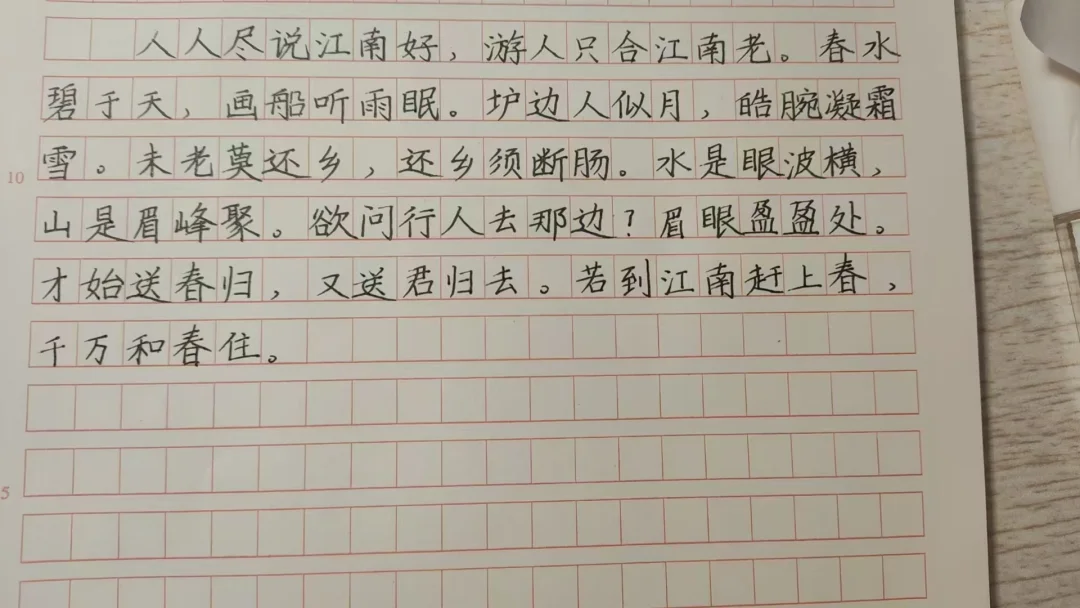 人人尽说江南好，游人只合江南老。春水
碧于天，画船听雨眠。垆边人似月，皓腕凝霜
雪。未老莫还乡，还乡须断肠。水是眼波横，
10
山是眉峰聚。欲问行人去那边？眉眼盈盈处。
才始送春归，又送君归去。若到江南赶上春，
千万和春住。
5